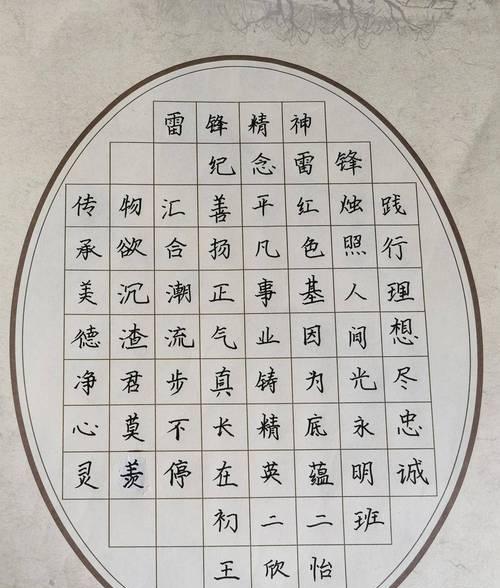 雷锋精神
纪念雷锋
践行理想尽忠诚
烛照人间光永明
红色基因为底蕴
平凡事业铸精英
善扬正气真长在
汇合潮流步不停
物欲沉渣君莫羡
传承美德净心灵
初二二班
王欣怡